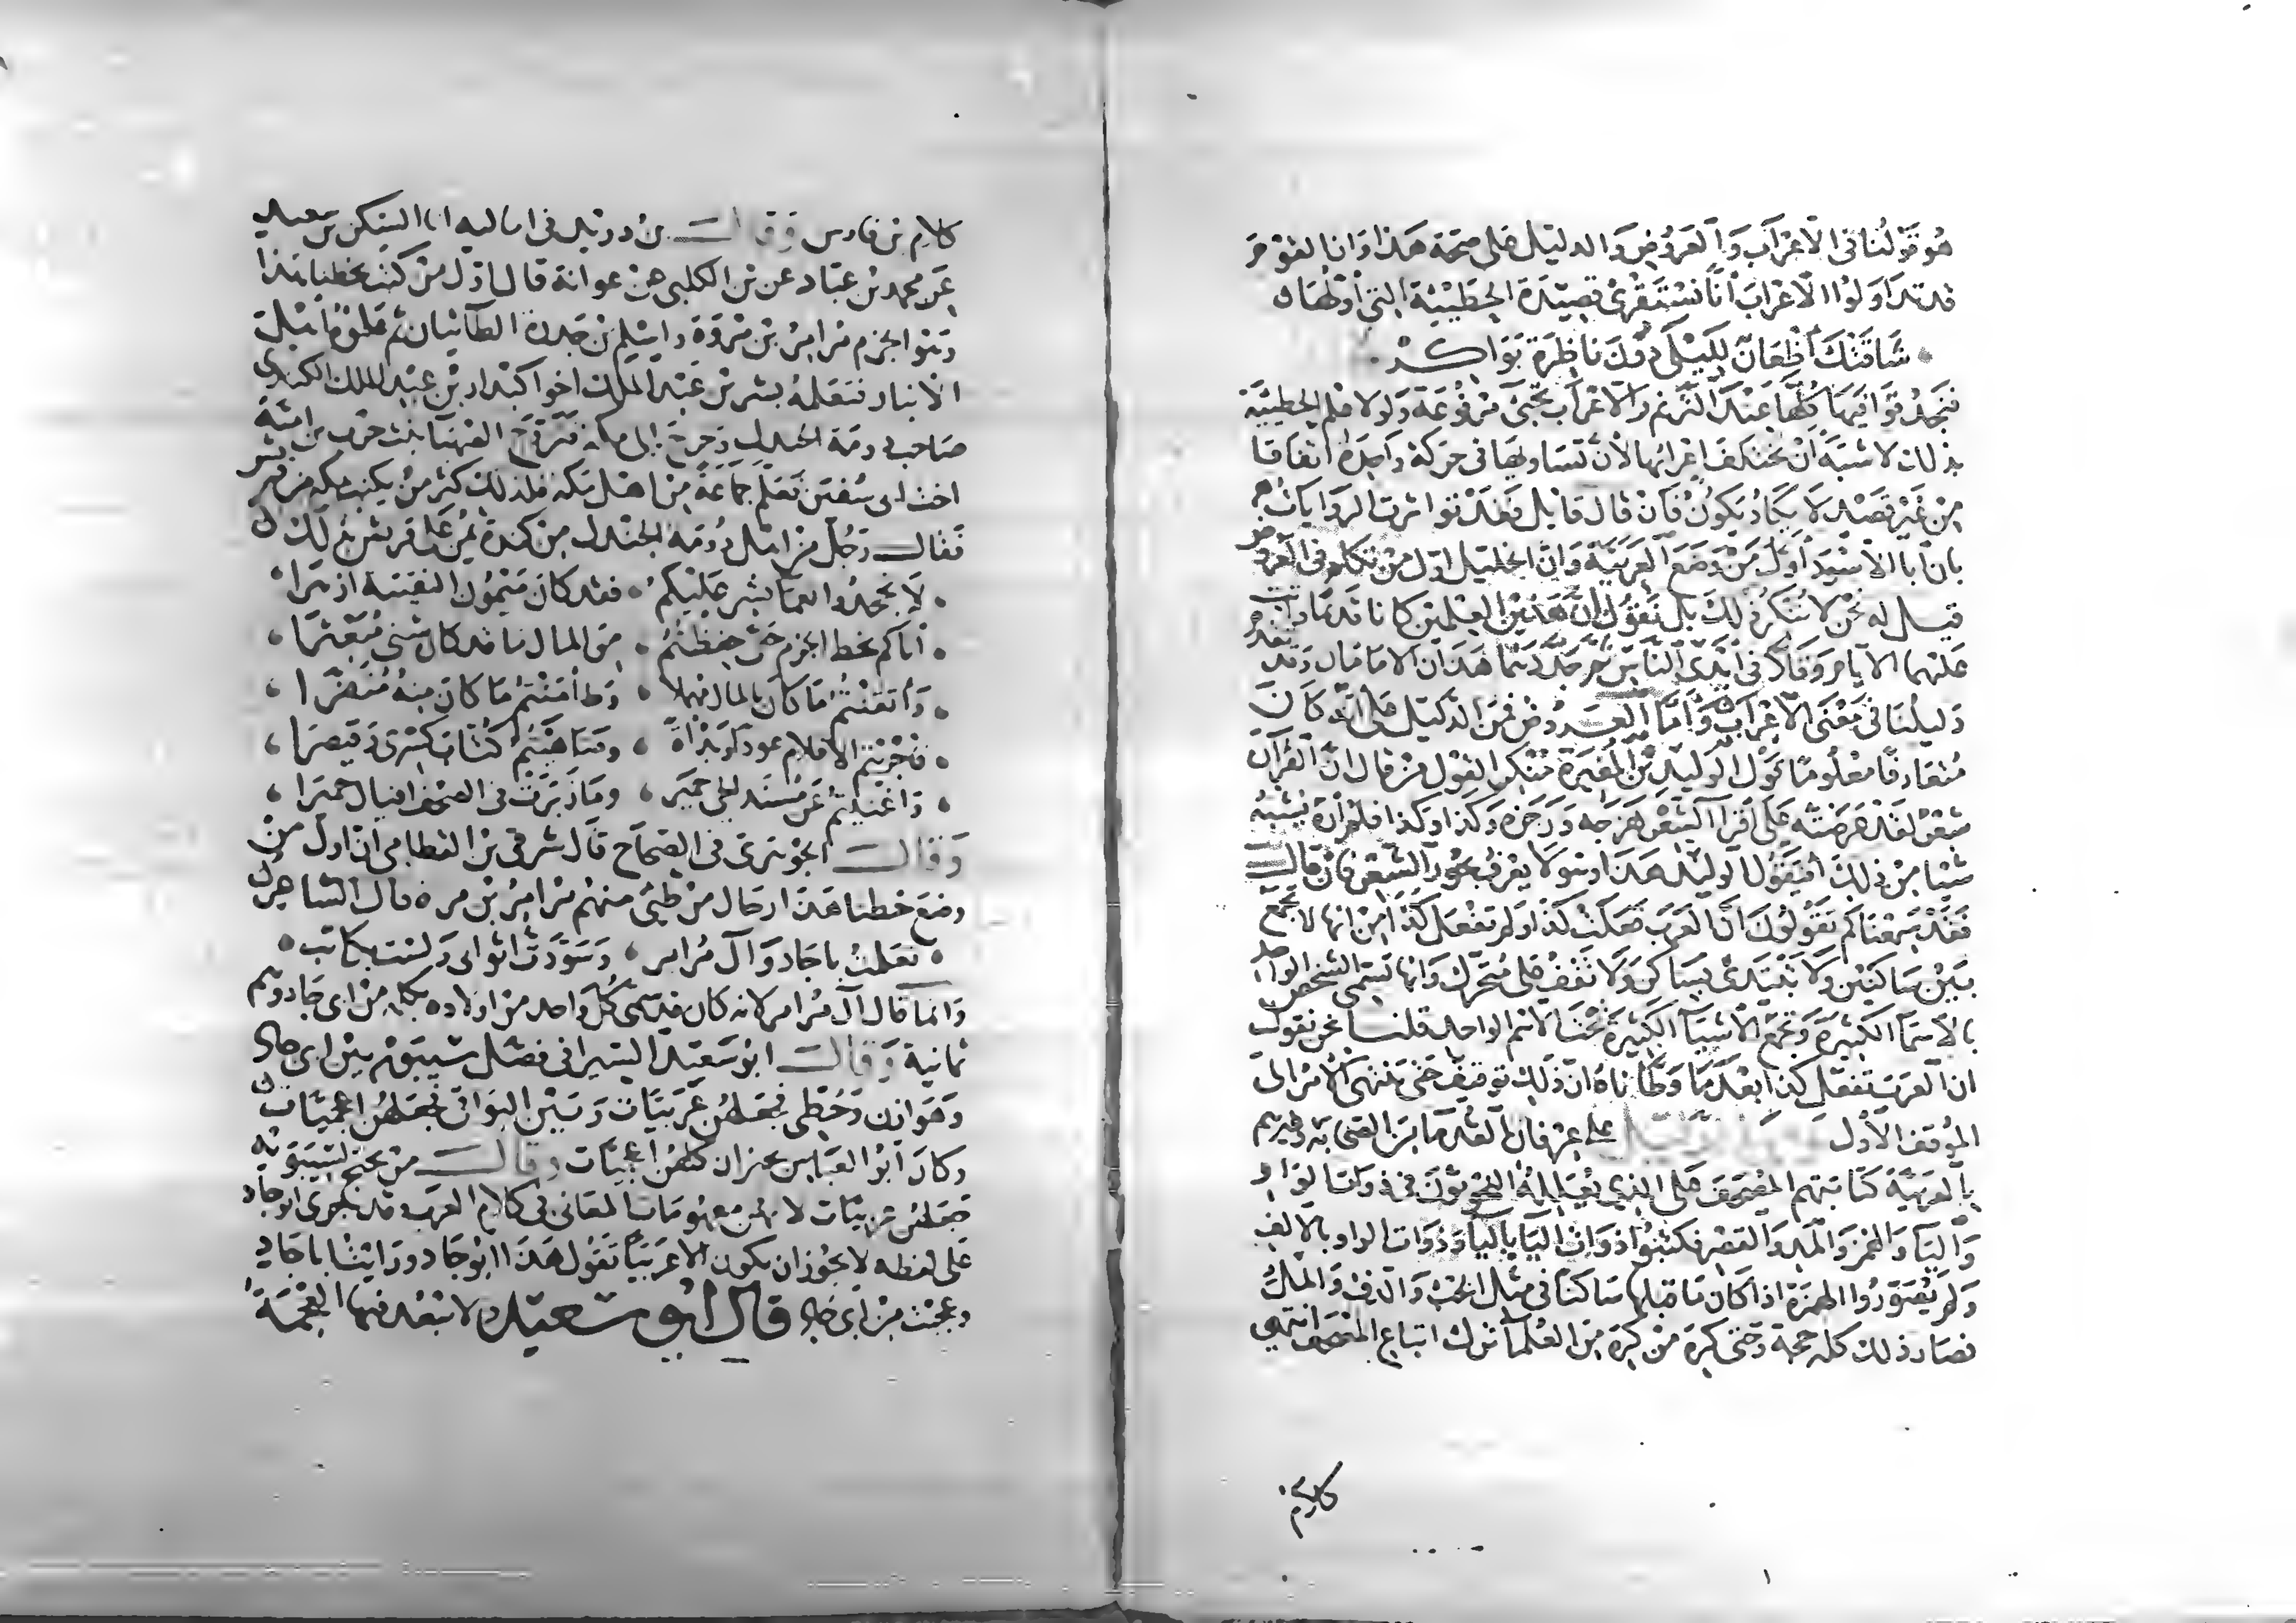 هُوَ قَوْلُنا فى الاعْرَابَ وَالعَرُوضِ وَالدليْل عَلى صحّة هَذا وَان القوْم
قد تدَاوَلوُا الاعْرابَ أنّا نَسْتَقْرِئ قصِيْدَة الحُطَيْئَة التى أوّلهَا
شَاقَتْكَ أظْعَانٌ لِلَيْلَى دُوْنَ نَاظِرَة بَوَاكِرْ
فنجدُ قوَافِيَهَا كُلهّا عِنْدَ التّرنم وَالاعْرَاب تجئ مَرْفُوعَة وَلولا علم الحُطيئة
بذلك لاشبَهَ أنْ يختلفَ إعْرابُها لأن تسَاويهَا فى حَركة وَاحِدَة اتفاقا
مِنْ غَيْر قصْد لا يكَادُ يَكوُنُ فَان قال قايل فقد تواترت الروَايَات
بان ابا الأسْوَد أوّل مَنْ وَضَعَ العَرَبيّة وَان الخليْل اوّل من تكلم فى العروض
قيل له نحن لا نُنكر ذلك بل نَقُولُ انّ هَذيْن العِلمين كانا قديمًا وأتت
عَليْهما الايام وَقَلّا فى أيْدى النّاس ثم جدّدَهمَا هَذَان الامَامَان وَقد تقدم
دَليلُنَا فى مَعْنَى الاعْرَاب وَأمّا العَرُوض فمنَ الدّليْل على أنّه كَانَ
مُتعَارفًا معْلُومًا قَوْل الوَليْد بْن المُغيَرة مُنْكِرًا لقَوْل مَن قال ان القرْآن
شِعْرٌ لقَدْ عَرضتُه عَلى أقْرَاء الشّعْر هَزَجه وَرَجَزه وَكَذَا وَكَذا فلمْ أرَه يُشْبهُ
شَيْئا مِنْ ذلكَ أفَيَقُول الوَليْد هَذا وَهوَ لا يعْرفُ بحُور الشّعْر فان قال
فقَدْ سَمِعْنَاكم تَقُولُونَ انّ العَرَبَ فعَلَتْ كَذَا وَلم تَفْعَل كَذا مِنْ انهَا لا تجمَع
بَيْن سَاكنَيْن وَلا تبْتَدئ بسَاكن وَلا تَقْفُ على مُتحَرّك وَانها تُسَمّى الشخْص الوَاحِد
بالاسْمَاء الكَثِيْرَة وَتجْمَع الاشْيَاء الكثيْرَة تحْتَ الاسْم الواحد قلنا نحن نقول
ان العَرَب تفعل كذا بعْدَ مَا وَطّأناهُ انّ ذَلِكَ توْقيفٌ حَتى يَنْتهى الأمْر الى
الموْقف الأوّل
على عِرْفان القُدمَاء مِنَ الصَحَابَة وَغيْرهم
بالعَرَبيّة كتَابَتهم المصْحَفَ على الذى يعَلّلهُ النّحْويّوْنَ فى ذوَات الوَاو
وَاليَاء وَالهمْز وَالمَدّ وَالقَصْر فكَتبُوا ذوَات اليَاء باليَاء وَذَوَات الواو بالالف
وَلم يُصَوّرُوا الهمْزة اذا كان مَا قبلها سَاكنًا فى مثل الخبْء وَالدّفء وَالملْءُ
فصَار ذلك كله حجة وَحتى كرهَ مَنْ كرهَ مِن العُلمَاء ترك اتباع المصْحَف انتهى
كلام
كلام بن فارس وَقال بن دريْد فى اماليه انا السّكن بن سعيد
عَن محمد بن عَبّاد عن بن الكلبى عن عوانة قال اوّل من كتبَ بخطنا هذا
وَهوَ الجزم مُرامرُ بن مرّة وَاسْلم بن جدرة الطائيان ثم علموهُ أهْل
الانبار فتعلمهُ بشر بن عَبْد الملك اخو اكيْدر بن عَبْد الملك الكندى
صَاحب دومَة الجندل وَخرجَ الى مكة فتزوّج الصّهبَا بنت حَرب بن اميّة
اخت ابى سُفين فعَلّم جَمَاعَةً مِن اهْل مكة فلذلك كثر مَنْ يكتب بمكة من قريش
فقَال رَجُل من اهْل دُومَة الجندل مِن كندة يمُنّ عَلى قريش بذلك
لا تجحَدُوا نعمَا بشر عَلَيْكم فقد كان مَيْمُون النقيبَة ازهرَا
أتاكم بخط الجزم حَتى حفظتُمُ مِن المال مَا قد كان شتى مُبَعْثرَا
وَأتقَنْتُم مَا كانَ بالمال مهملا وَطامَنْتُم مَا كانَ مِنهُ مُنَفرا
فَأجْرَيتُم الاقلام عودًا وَبَدأةً وضَاهَيْتُم كُتّابَ كسْرَى وَقيْصرَا
وَاغنيْتُم عَن مُسْنَد الحى حميَر وَمَا زَبَرتْ فى الصحْف اقيال حميَرا
وَقال الجوْهَرى فى الصحَاح قالَ شرقى بن القطامى ان اول من
وضعَ خطنا هَذا رجال منْ طيئ منهُم مُرامرُ بن مرة قال الشاعرُ
تعلمتُ باجَاد وَآل مُرامر وَسَوّدتُ اثوابى وَلسْت بكاتب
وَانما قال آل مُرامر لانه كان قد سَمّى كُلّ واحد من اولاده بكلمة من ابى جَاد وَهم
ثمانية وَقال ابو سَعيْد السيرافى فصَل سيبَويْه بيْن ابى جاد
وَهَوّازن وَحُطّى فجعَلهُن عَربيّات وَبَيْن البوَاقى فجعَلهُنّ اعجميّات
وَكانَ أبُو العَبّاس يجيز ان كلهُن اعجميّات وقال من يحتج لسيبَوَيْه
جَعَلهُن عربيّات لانهُن مفهُومَات المعَانى فى كلام العَرَب وَقد جرى ابو جاد
عَلى لفظ لا يجُوز ان يكون الا عَربيّا تَقُول هَذَا ابُو جَاد وَرَايْتُ ابا جَاد
وَعَجبت مِن أبى جَاد قال أبُو سَعيْد لا تبْعُد فيهَا العجْمَة